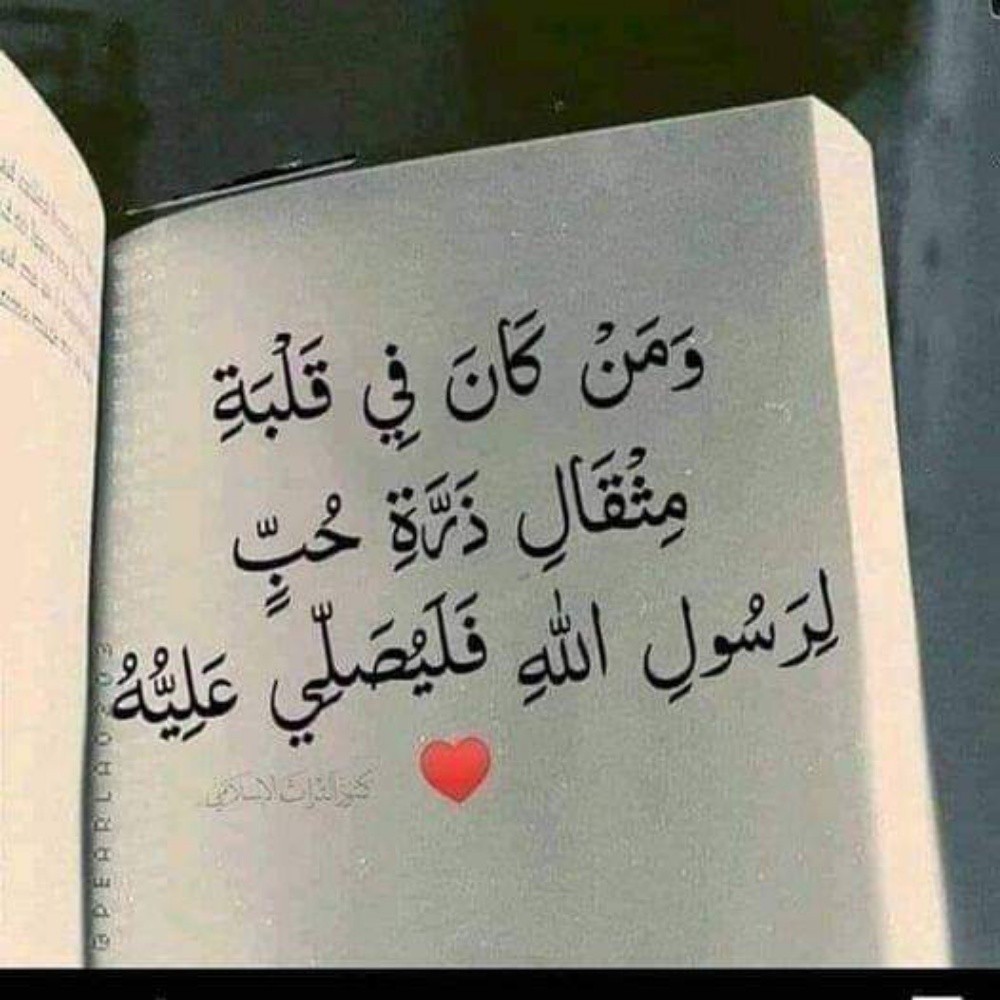 وَمَنْ كَانَ فِي قَلْبَةِ
مِثْقَالِ ذَرَّةِ حُبٍّ
لِرَسُولِ اللهِ فَلَيُصَلِّي عَلِيُّهُ
كنوز التراث الإسلامي